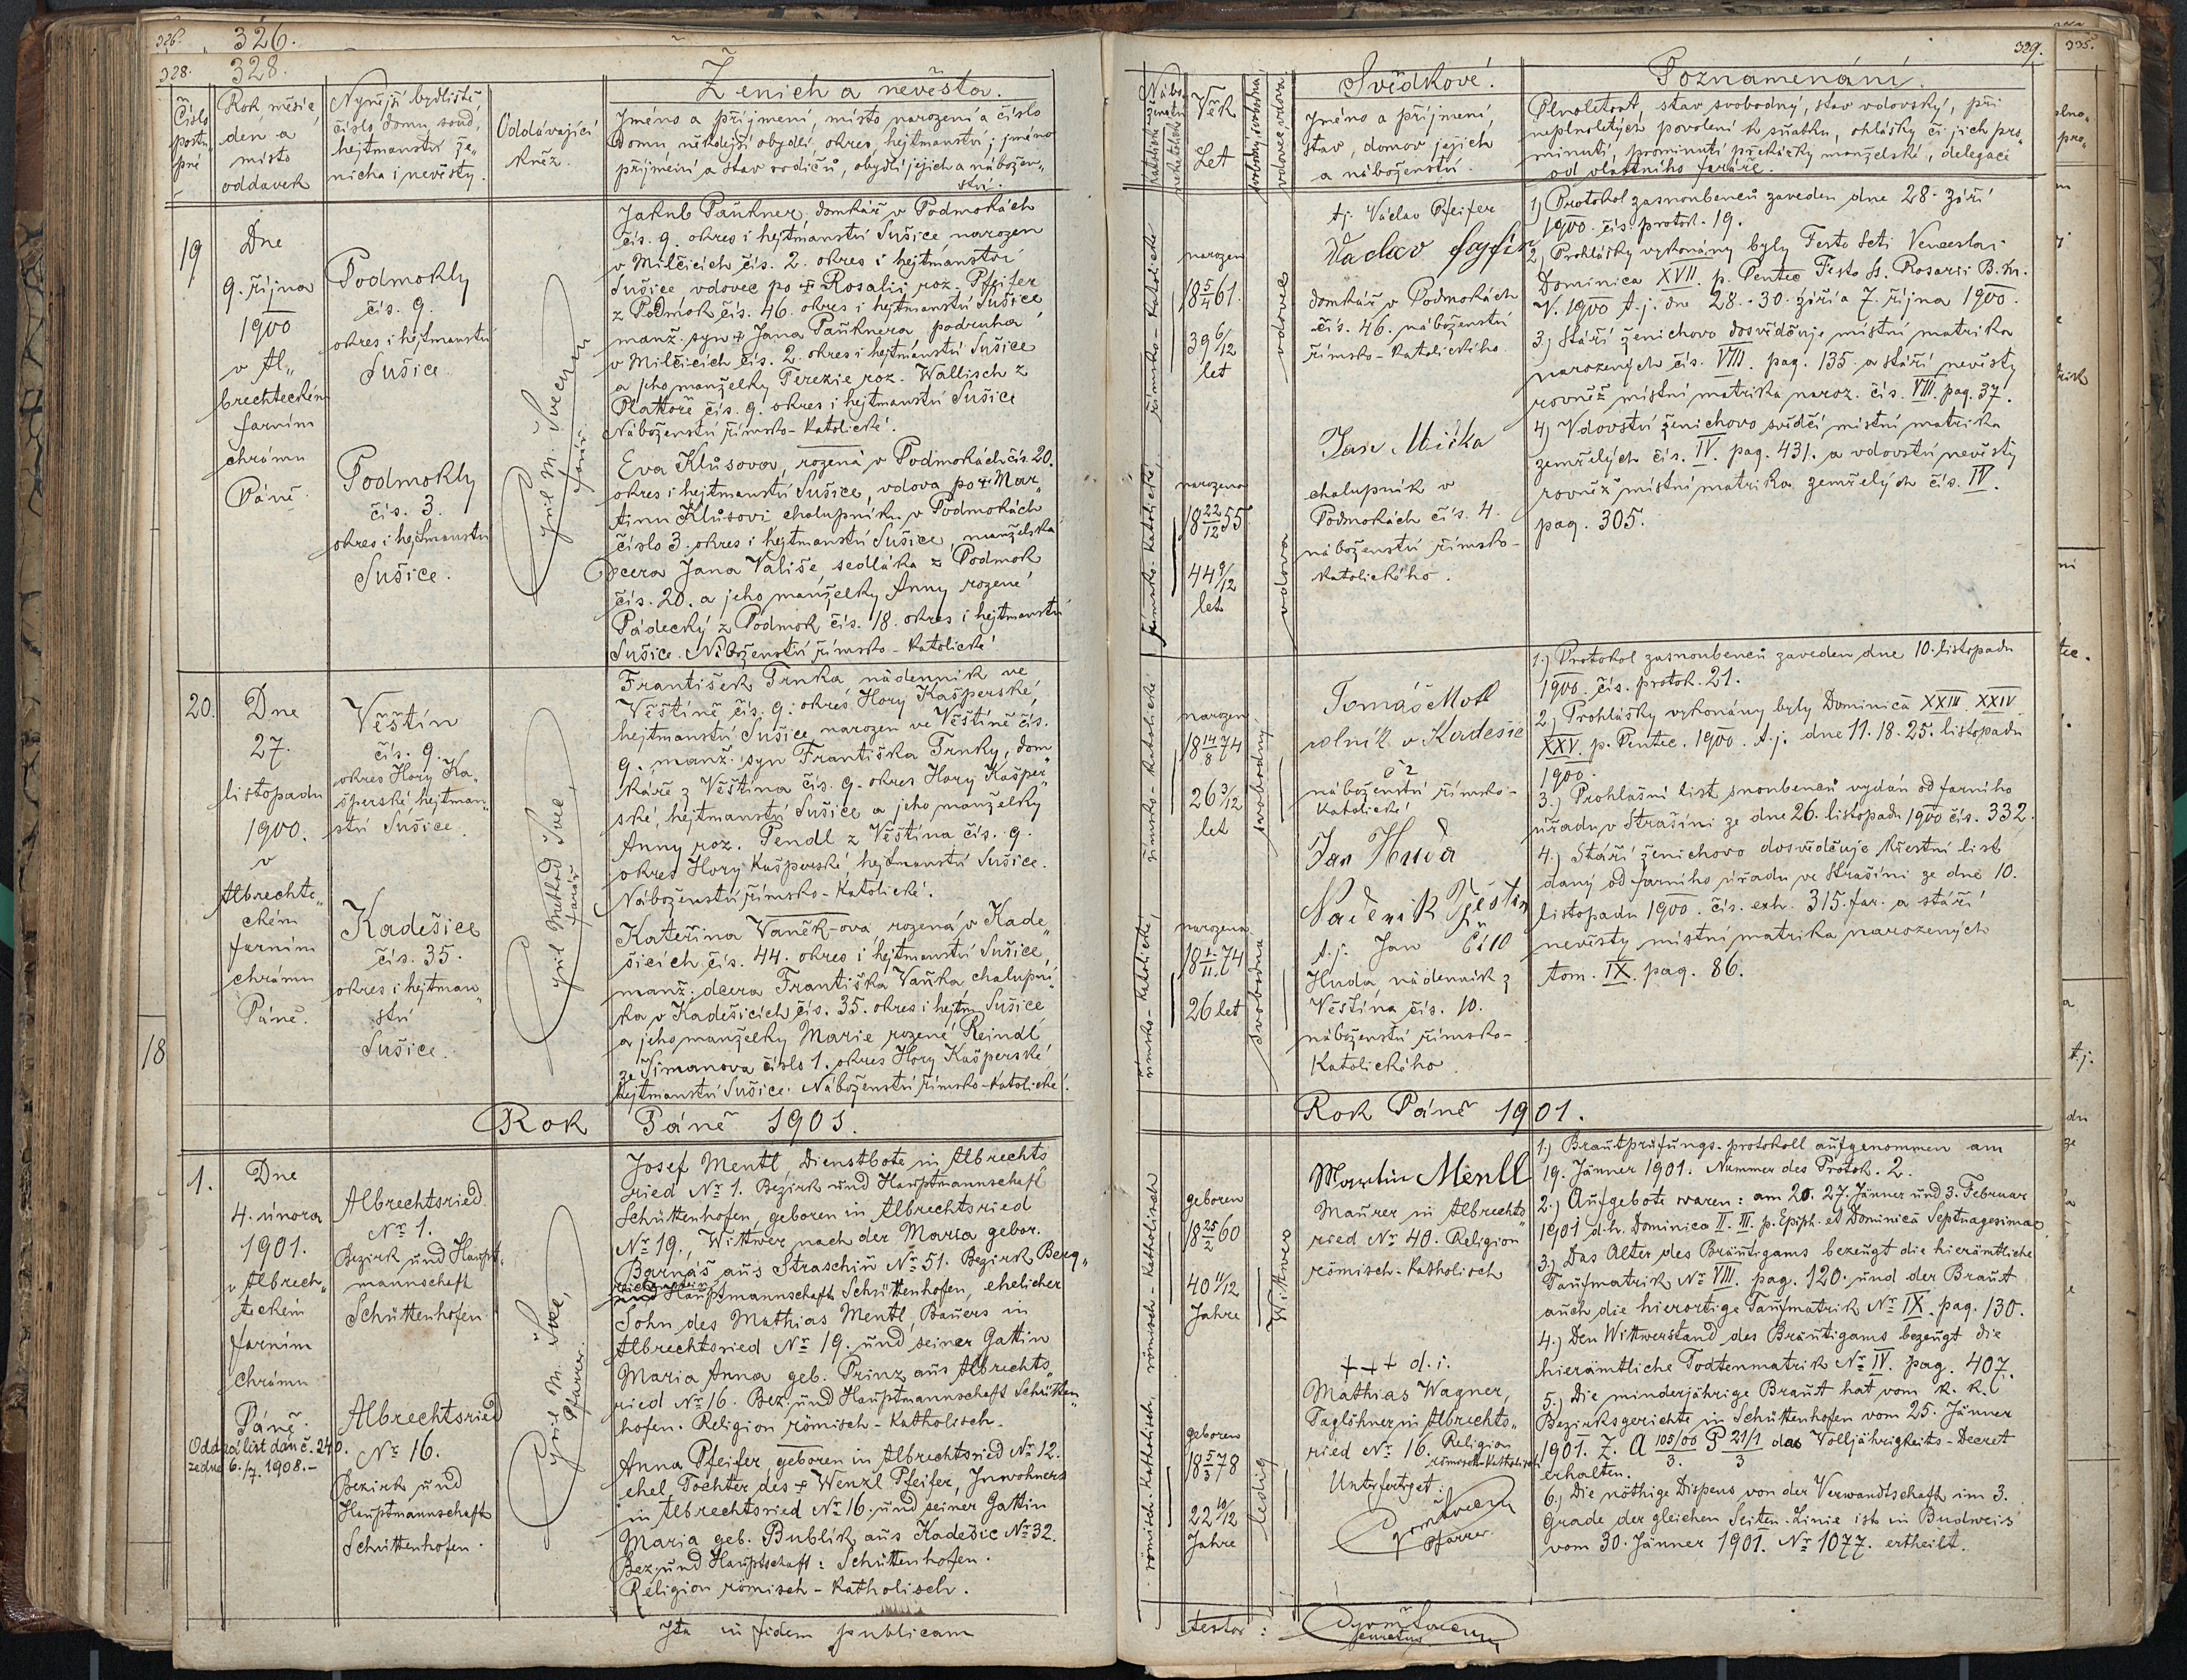 326. 326.
328. 328.
Ženich a nevěsta.
Číslo
postu„
pné
Rok, měsíc,
den a
místo
oddavek
Nynější bydliště
číslo domu, soud,
hejtmanství že„
nicha i nevěsty.
Oddávající
kněz.
Jméno a příjmení, místo narození a číslo
domu, někdejší obydlí, okres, hejtmanství; jméno
příjmení a stav rodičů, obydlí jejich a nábožen„
ství.
19
Dne
9. října
1900
v Al„
brechteckém
farním
chrámu
Páně.
Podmokly
čís. 9.
okres i hejtmanství
Sušice
Podmokly
čís. 3.
okres i hejtmanství
Sušice.
Cyril M. Švec
farář
Jakub Paŭkner, domkář v Podmokách
čís. 9. okres i hejtmanství Sušice, narozen
v Milčicích čís. 2. okres i hejtmanství
Sušice vdovec po + Rosalii roz. Pfeifer
z Podmok čís. 46. okres i hejtmanství Sušice
manž. syn + Jana Paŭknera podruha
v Milčicích čís. 2. okres i hejtmanství Sušice
a jeho manželky Terezie roz. Wallisch z
Plattoře čís. 9. okres i hejtmanství Sušice
Náboženství římsko-katolické.
Eva Klůsova, rozená v Podmokách čís. 20.
okres i hejtmanství Sušice, vdova po + Mar„
tinu Klůsovi chalupníku v Podmokách
číslo 3. okres i hejtmanství Sušice, manželská
Dcera Jana Vališe, sedláka z Podmok
čís. 20. a jeho manželky Anny rozené
Pádecký z Podmok čís. 18. okres i hejtmanství
Sušice. Náboženství římsko-katolické
20.
Dne
27.
listopadu
1900.
v
Albrechte„
ckém
farním
chrámu
Páně.
Věštín
čís. 9.
okres Hory Ka„
šperské hejtman„
ství Sušice.
Kadešice
čís. 35.
okres i hejtman„
ství
Sušice.
Cyril Method Švec,
farář
František Trnka nádenník ve
Věštíně čís. 9. okres Hory Kašperské,
hejtmanství Sušice, narozen ve Věštíně čís.
9. manž. syn Františka Trnky, dom
káře z Věštína čís. 9. okres Hory Kašper„
ské, hejtmanství Sušice a jeho manželky
Anny roz. Pendl z Věštína čís. 9.
okres Hory Kašperské, hejtmanství Sušice.
Náboženství římsko-katolické.
Kateřina Vaněk-ova rozená v Kade„
šicích čís. 44. okres i hejtmanství Sušice,
manž. dcera Františka Vaňka, chalupní„
ka v Kadešicích čís. 35. okres i hejtm. Sušice
a jeho manželky Marie rozené Reindl
ze Šimanova číslo 1. okres Hory Kašperské
hejtmanství Sušice. Náboženství římsko-katolické.
18
Rok Páně 1901.
1.
Dne
4. února
1901.
v Albrech„
teckém
farním
chrámu
Páně.
Oddací list dán č. 240.
ze dne 6./7. 1908.-
Albrechtsried
Nr 1.
Bezirk und Haupt„
mannschaft
Schüttenhofen.
Albrechtsried
Nr 16.
Bezirk und
Hauptmannschaft
Schüttenhofen.
Cyril M. Švec,
Pfarrer.
Josef Mentl, Dienstbote in Albrechts„
ried Nr 1. Bezirk und Hauptmannschaft
Schüttenhofen, geboren in Albrechtsried
Nr 19., Wittwer nach der Maria gebor.
Barnáš aus Straschin Nr 51. Bezirk Berg„
reichenstein
und Hauptmannschaft Schüttenhofen, ehelicher
Sohn des Mathias Mentl, Bauers in
Albrechtsried Nr 19. und seiner Gattin
Maria Anna geb. Prinz aus Albrechts„
ried Nr 16. Bez. und Hauptmannschaft Schütten„
hofen. Religion römisch-katholisch.
Anna Pfeifer, geboren in Albrechtsried Nr 12.
ehel. Tochter des + Wenzl Pfeifer, Inwohners
in Albrechtsried Nr 16. und seiner Gattin
Maria geb. Bublik aus Kadešic Nr 32.
Bez. und Hauptschaft: Schüttenhofen.
Religion römisch-katholisch.
Ita in fidem publicam
329. 335.
Nábo-
ženství
katolické
nekatolické
Věk
Let
svobodný, svobodná,
vdovec, vdova.
Svědkové.
Jméno a příjmení,
stav, domov jejich
a náboženství.
Poznamenání.
Plnoletost, stav svobodný, stav vdovský, při
neplnoletých povolení k sňatku, ohlášky či jich pro„
minutí, prominutí překážky manželské, delegaci
od vlastního faráře.
římsko-katolické
narozen
18 5/4 61.
39 6/12
let
vdovec
římsko-katolické,
narozena
18 22/12 55
44 9/12
let
vdova
tj. Václav Pfeifer
Vaclav
domkář v Podmokách
čís. 46. náboženství
římsko-katolického
Jan Mička
chalupník v
Podmokách čís. 4.
náboženství římsko-
katolického.
1) Protokol zasnoubenců zaveden dne 28. září
1900. čís. protok. 19.
2) Prohlášky vykonány byly Festo Scti Venceslai
Dominica XVII. p. Pentec Festo Ss. Rosarii B. M.
V. 1900 t. j. dne 28. 30. září a 7. října 1900.
3) Stáří ženichovo dosvědčuje místní matrika
narozených čís. VIII. pag. 135. a stáří nevěsty
rovněž místní matrika naroz. čís. VIII. pag. 37.
4) Vdovství ženichovo svědčí místní matrika
zemřelých čís. IV. pag. 431. a vdovství nevěsty
rovněž místní matrika zemřelých čís. IV.
pag. 305.
římsko-katolické
narozen
18 14/8 74
26 3/12
let
svobodný
římsko-katolické,
narozena
18 1./11. 74
26 let
svobodna
Tomáš Motl
rolník v Kadešic
č 2
náboženství římsko-
katolické
Jan Huda
Nadenik Vještin
t. j. Jan Či 10
Huda, nádenník z
Věštína čís. 10.
náboženství římsko-
katolického.
1.) Protokol zasnoubenců zaveden dne 10. listopadu
1900. čís. protok. 21.
2) Prohlášky vykonány byly Dominica XXIII. XXIV.
XXV. p. Pentec. 1900. t. j. dne 11. 18. 25. listopadu
1900.
3.) Prohlašní list snoubenců vydán od farního
úřadu v Strašíni ze dne 26. listopadu 1900 čís. 332.
4.) Stáří ženichovo dosvědčuje křestní list
daný od farního úřadu ve Strašíni ze dne 10.
listopadu 1900. čís. exh. 315. far. a stáří
nevěsty místní matrika narozených
tom. IX. pag. 86.
Rok Páně 1901.
römisch-katholisch
geboren
18 25/2 60
40 11/12
Jahre
Wittwer
römisch-katholisch,
geboren
18 5/3 78
22 10/12
Jahre
ledig
Martin Mentl
Maurer in Albrechts„
ried Nr 40. Religion
römisch-katholisch
+++ d. i.
Mathias Wagner,
Taglöhner in Albrechts„
ried Nr 16. Religion
römisch-katholisch
Unterfertiget:
Pfarrer.
1.) Brautprüfungs-protokoll aufgenommen am
19. Jänner 1901. Nummer des Protok. 2.
2.) Aufgebote waren: am 20. 27. Jänner und 3. Februar
1901 d. h. Dominica II. III. p. Epiph. et Dominica Septuagesimae
3.) Das Alter des Bräutigams bezeugt die hierämtliche
Taufmatrik Nr VIII. pag. 120. und der Braut
auch die hierortige Taufmatrik Nr IX. pag. 130.
4.) Den Wittwerstand des Bräutigams bezeugt die
hierämtliche Todtenmatrik Nr IV. pag. 407.
5.) Die minderjährige Braut hat vom k. k.
Bezirksgerichte in Schüttenhofen vom 25. Jänner
1901. Z. A 105/00/3. P 21/1/3 das Volljährigkeits-Decret
erhalten.
6.) Die nöthige Dispens von der Verwandtschaft im 3.
Grade der gleichen Seiten-Linie ist in Budweis
vom 30. Jänner 1901. Nr 1077. ertheilt.
testor: